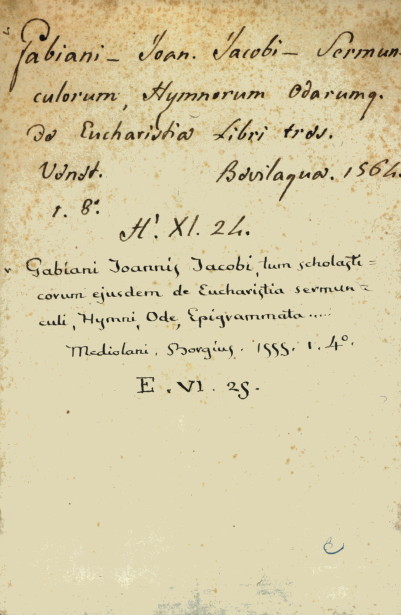 Gabiani - Joan. Jacobi - Sermun-
culorum, Hymnorum Odarumq.
De Eucharistia Libri tres.
Venet. Bevilaqua. 1564.
1. 8.º
H'. XI. 24.
Gabiani Joannis Jacobi, tum scholasti=
corum ejusdem de Eucharistia sermun=
culi, Hymni, Ode, Epigrammata.....
Mediolani. Borgius. 1555. 1. 4º.
E. VI. 25.